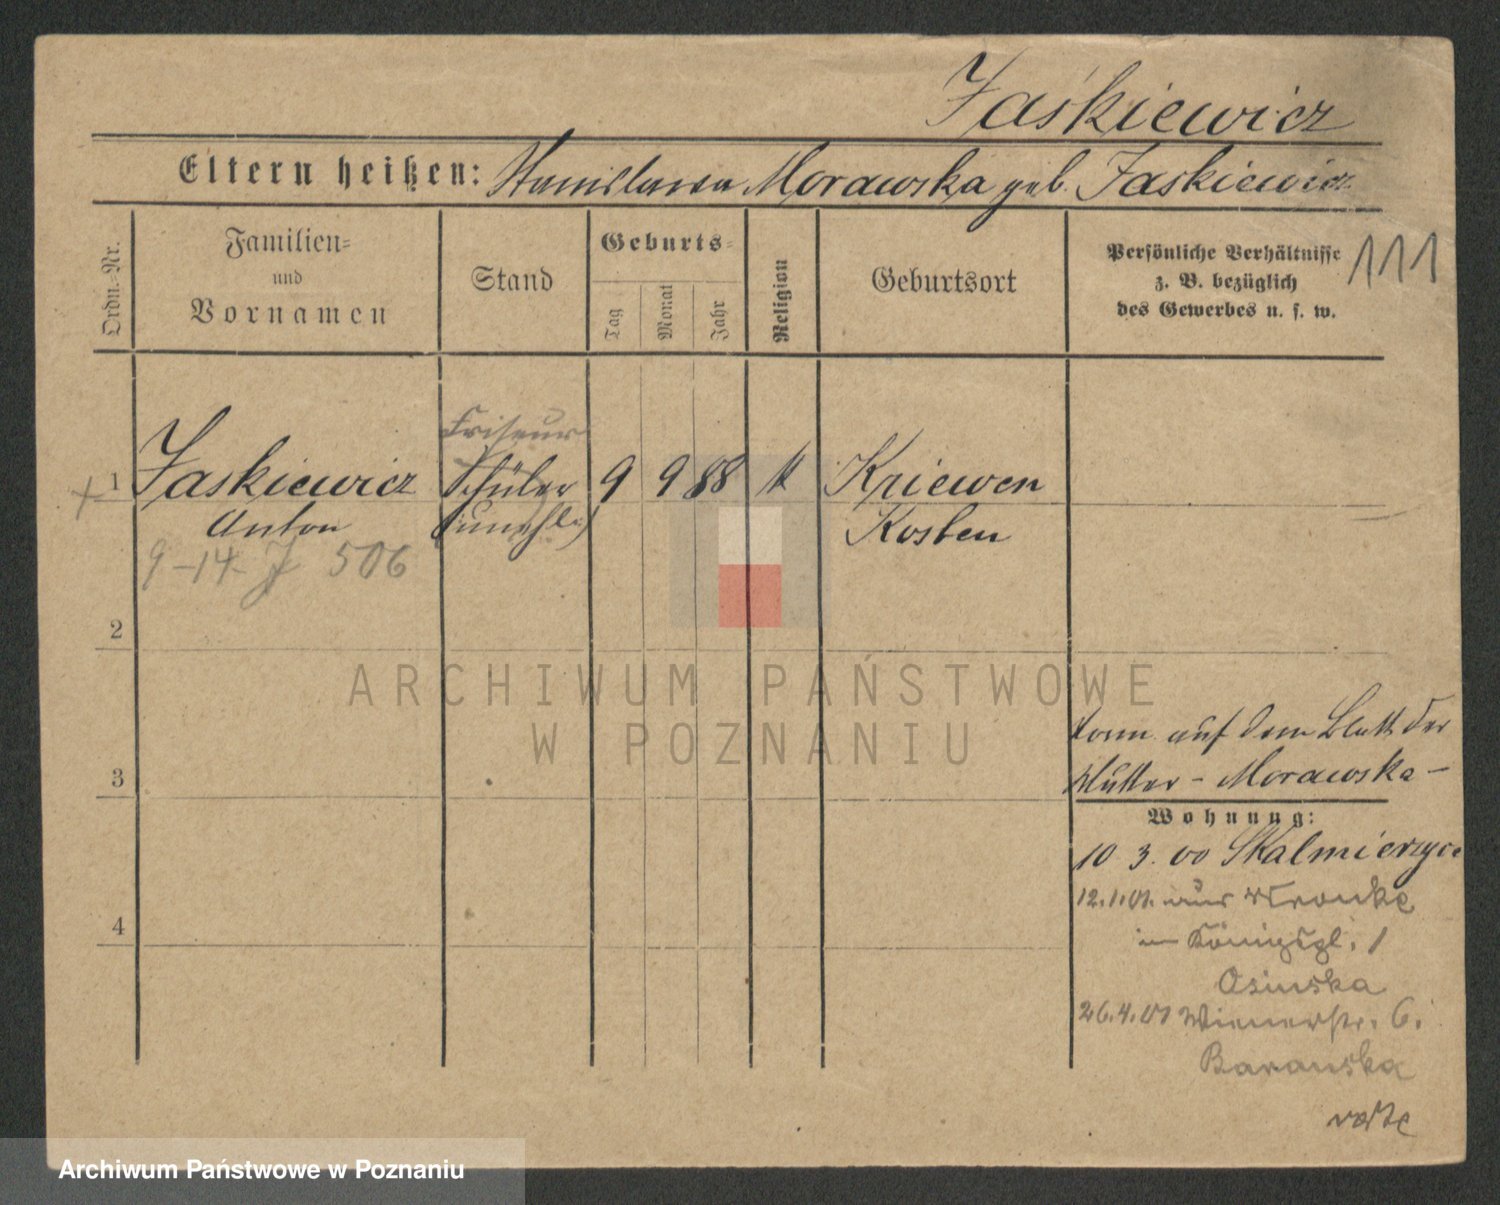 Jaśkiewicz
Eltern heißen: Stanislawa Morawska geb. Jaskiewicz
Ordn.-Nr.
Familien-
und
Vornamen
Stand
Geburts-
Tag
Monat
Jahr
Religion
Geburtsort
Persönliche Verhältnisse
z. B. bezüglich
des Gewerbes u. s. w.
111
Friseur
1 Jaskiewicz Schüler 9 9 88 k Kriewen
Anton (unehl.) Kosten
9-14- J 506
2
ARCHIWUM PAŃSTWOWE
W POZNANIU
3
4
auf dem Blatt der
Mutter - Morawska -
Wohnung:
10 3. 00 Skalmierzyce
12.1.01. aus Wronke
in Königspl. 1
Osinska
26.4.01 Wienerstr. 6.
Baranska
Archiwum Państwowe w Poznaniu